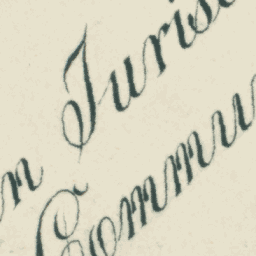 n Juris
Commu